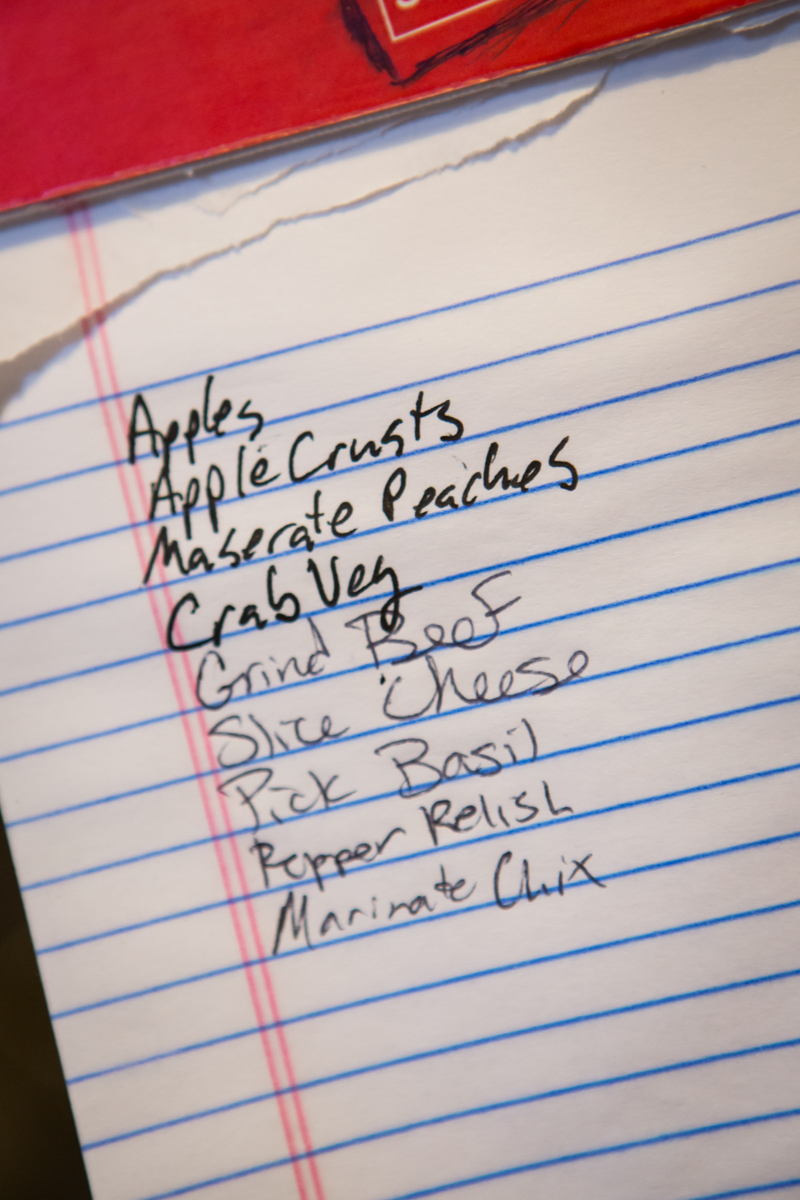 Apples
Apple Crusts
Maserate Peaches
Crab Veg
Grind Beef
Slice Cheese
Pick Basil
Pepper Relish
Marinate Chix